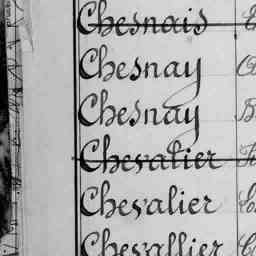 Chesnais
Chesnay
Chesnay
Chevalier
Chevalier
Chevallier